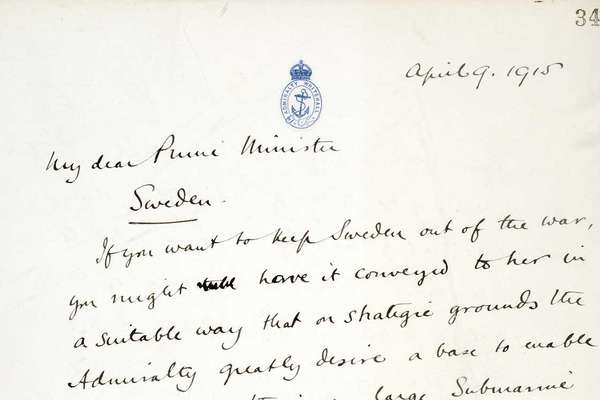 34
ADMIRALTY WHITEHALL
April 9. 1915
My dear Prime Minister
Sweden.
If you want to keep Sweden out of the war,
you might have it conveyed to her in
a suitable way that on strategic grounds the
Admiralty greatly desire a base to enable
large Submarine